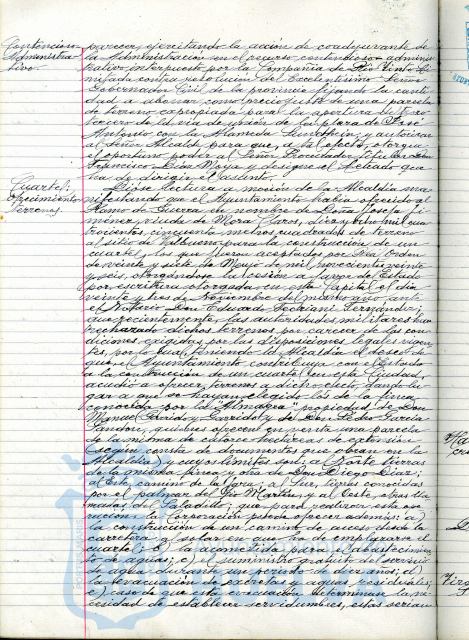 Contencioso
Administra-
tivo.
parecer, ejercitando la acción de coadyuvante de
la Administración en el recurso contencioso-adminis-
trativo interpuesto por la Compañía de Rio Tinto Li-
mitada contra resolución del Excelentísimo Señor
Gobernador Civil de la provincia fijando la canti-
dad a abonar como precio justo de una parcela
de terreno expropiada para la apertura del trozo
tercero de la vía de unión de la plaza de José
Antonio con la Alameda Sundheim; y autorizar
al Señor Alcalde para que, a tal efecto, otorgue
el oportuno poder al Señor Procurador titular Don
Francisco y designe el Letrado que
ha de dirigir el asunto.
Cuartel;
ofrecimiento
terrenos.
Dióse lectura a moción de la Alcaldía ma-
nifestando que el Ayuntamiento había ofrecido al
Ramo de Guerra de nombre de Doña Josefa Ji-
ménez, viuda de Mora Claros, diez y ocho mil cua-
trocientos cincuenta metros cuadrados de terreno
al sitio de para la construcción de un
cuartel, los que fueron aceptados por Real Orden
de veinte y siete de Mayo de mil novecientos veinte
y seis, otorgándose la cesión a favor del Estado
por escritura otorgada en esta Capital el día
veinte y tres de Noviembre del mismo año ante
el Notario Don Eduardo Hernández;
que recientemente, las autoridades militares han
rechazado dichos terrenos por carecer de las con-
diciones exigidas por las disposiciones legales vigen-
tes, por lo cual, teniendo la Alcaldía el deseo de
que el Ayuntamiento contribuya con el Estado
a la construcción de un cuartel en esta Ciudad,
acudió a ofrecer terrenos a dicho efecto, dando lu-
gar a que se hayan elegido los de la finca
conocida por la "Almagra" propiedad de Don
Manuel Garrido y Garrido y de Don Pedro García
quienes ofrecen en venta una parcela
de la misma de catorce hectáreas de extensión
(según consta de documentos que obran en la
Alcaldía), y cuyos límites son: al Norte tierras
de la misma finca y otra de Don Diego Díaz;
al Este, camino de la Jara; al Sur, tierras conocidas
por el palmar de San Martín, y al Oeste, otras lla-
madas de Saladillo; que para realizar esta
la Corporación debía ofrecer además: a)
la construcción de un camino de acceso desde la
carretera al solar en que ha de emplazarse el
cuartel; b) la acometida para el abastecimien-
to de aguas; c) el suministro gratuito del servicio
de agua durante un período de diez años; d)
la evacuación de excretas y aguas residuales;
e) caso de que esta evacuación determinase la ne-
cesidad de establecer servidumbres, estas serían